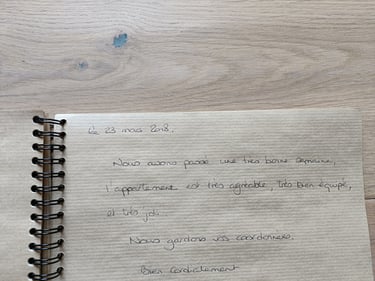 Le 23 mars 2018.
Nous avons passé une très bonne semaine,
l'appartement est très agréable, très bien équipé,
et très joli.
Nous gardons vos coordonnées.
Bien cordialement